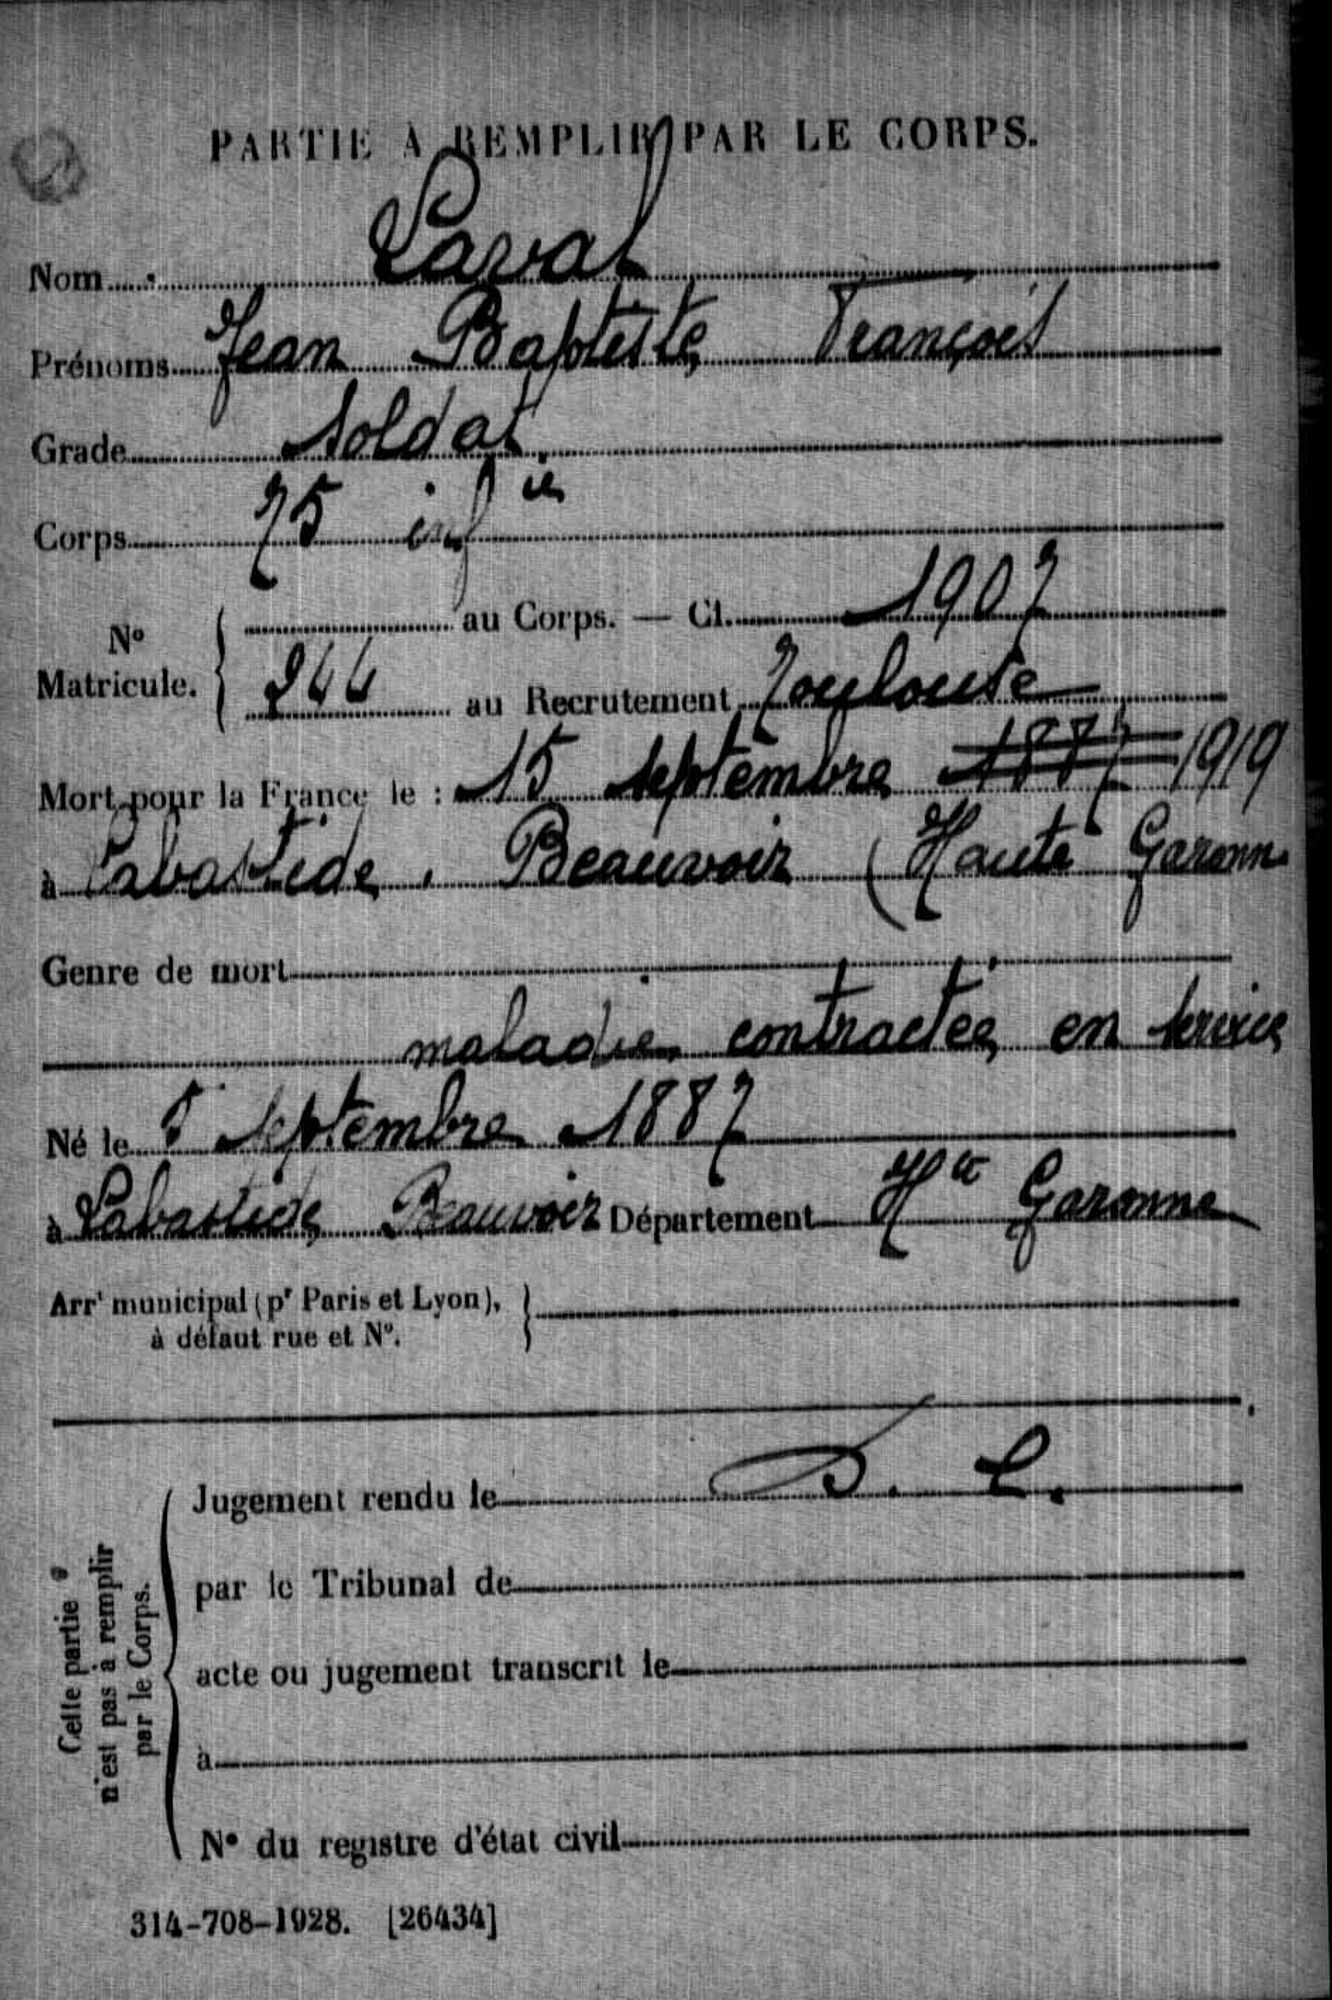 PARTIE À REMPLIR PAR LE CORPS.
Nom Laval
Prénoms Jean Baptiste François
Grade Soldat
Corps 75 inf ie
au Corps. — Cl. 1907
N°
Matricule. 244 au Recrutement Toulouse
Mort pour la France le : 15 septembre 1887 1919
à Labastide Beauvoir (Haute Garonne
Genre de mort
maladie contractée en service
Né le 5 septembre 1887
à Labastide Beauvoir Département Hte Garonne
Arrt municipal (pr Paris et Lyon),
à défaut rue et N°.
Jugement rendu le D. C.
par le Tribunal de
acte ou jugement transcrit le
à
N° du registre d'état civil
Cette partie
n'est pas à remplir
par le Corps.
314-708-1928. [26434]